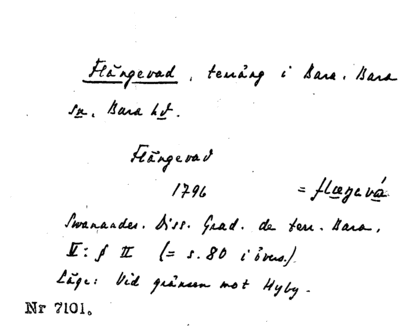 Flängevad, terräng i Bara, Bara
sn, Bara hd.
Flängevad
1796 = flæŋevá
Swanander. Diss. Grad. de terr. Bara,
V: § II (= s. 80 i övers.)
Läge: Vid gränsen mot Hyby.
Nr 7101.